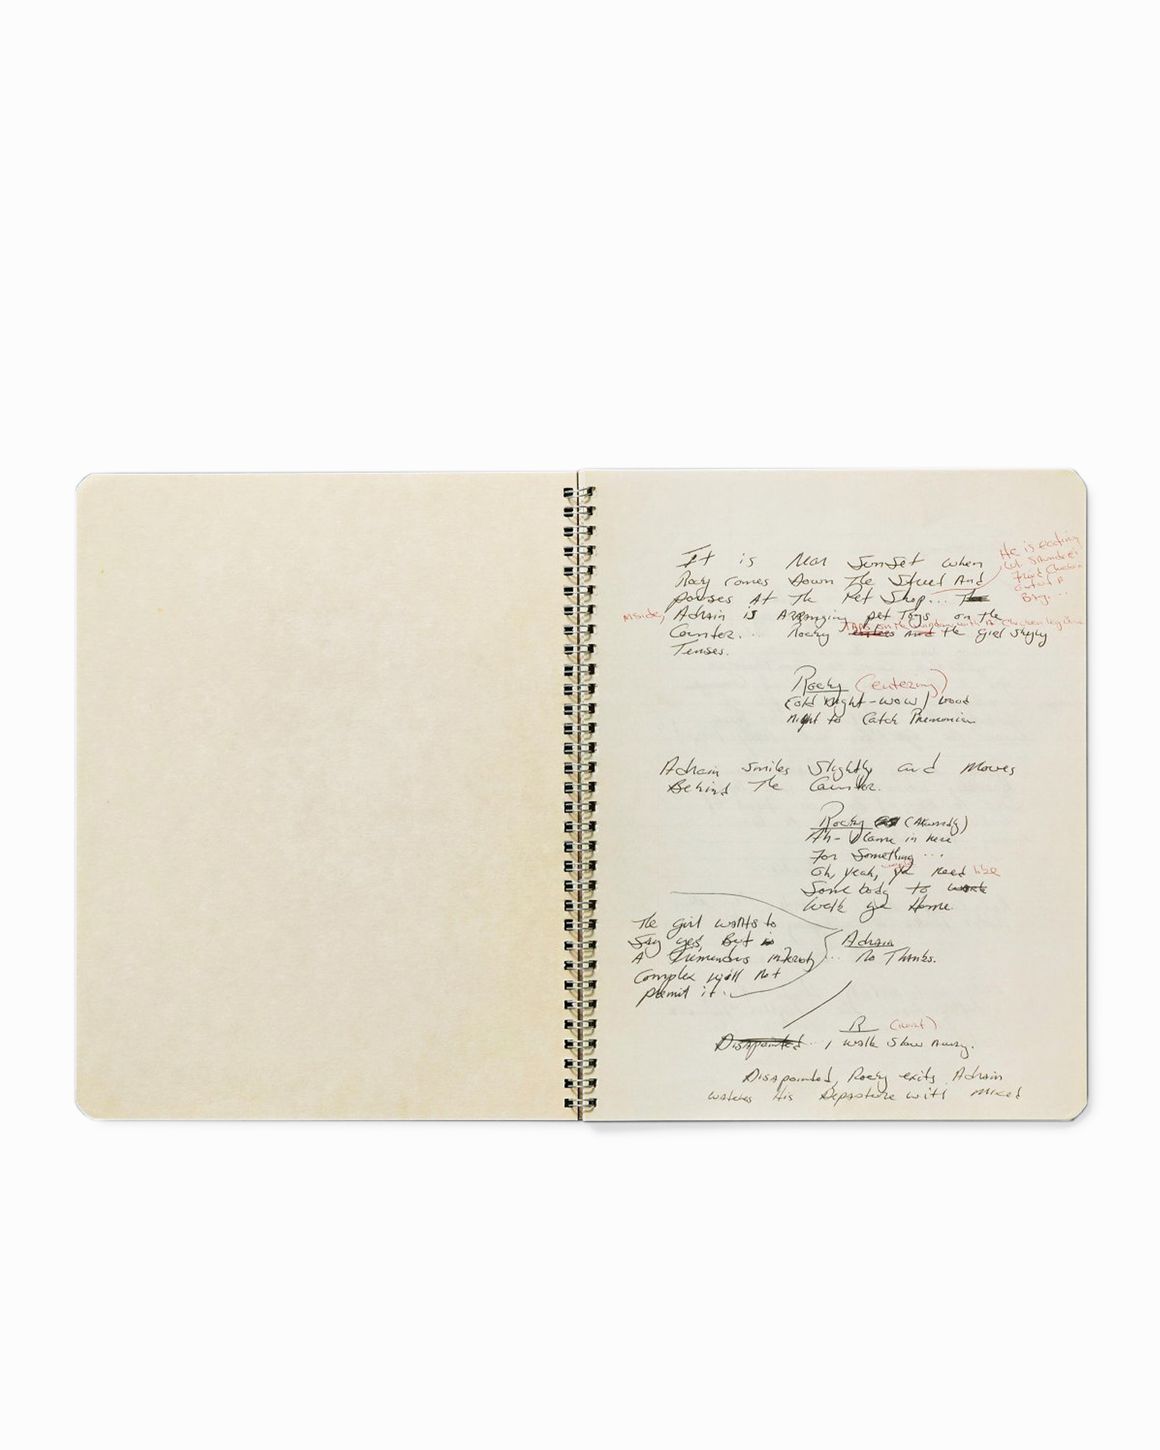 He is eating
Fried Chicken
out of A
Bag...
It is Near SunSet when
Rocky Comes Down The Street And
pauses At The Pet Shop...
inside, Adrain is Arranging pet Toys on the
Counter... Rocky TAPS on the window with A Chicken leg
enters And the girl shyly
Tenses.
Rocky (entering)
Cold Night - wow / Good
night to Catch Pnemonia
Adrain Smiles Slightly and Moves
Behind The Counter.
Rocky (Akwardly)
Ah - I Came in here
For Something ...
Oh, yeah, ya need like
Somebody to walk
Walk ya Home.
The girl wants to
Say yes, But
A Tremendus inferiority
Complex will Not
permit it.
Adrain
... No Thanks.
R
Disapointed I walk Slow Away.
Disapointed, Rocky exits. Adrain
watches His Departure with Mixed